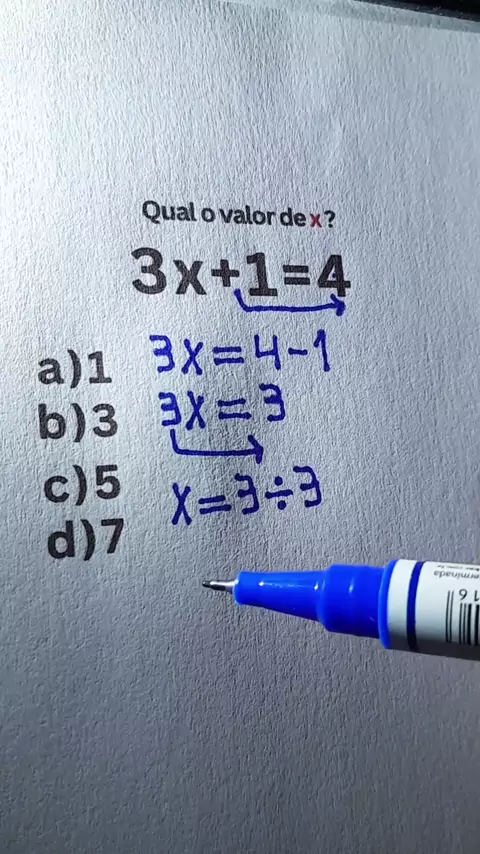 Qual o valor de x?
3x+1=4
a)1
b)3
c)5
d)7
3x=4-1
3x=3
x=3÷3
erminada
16